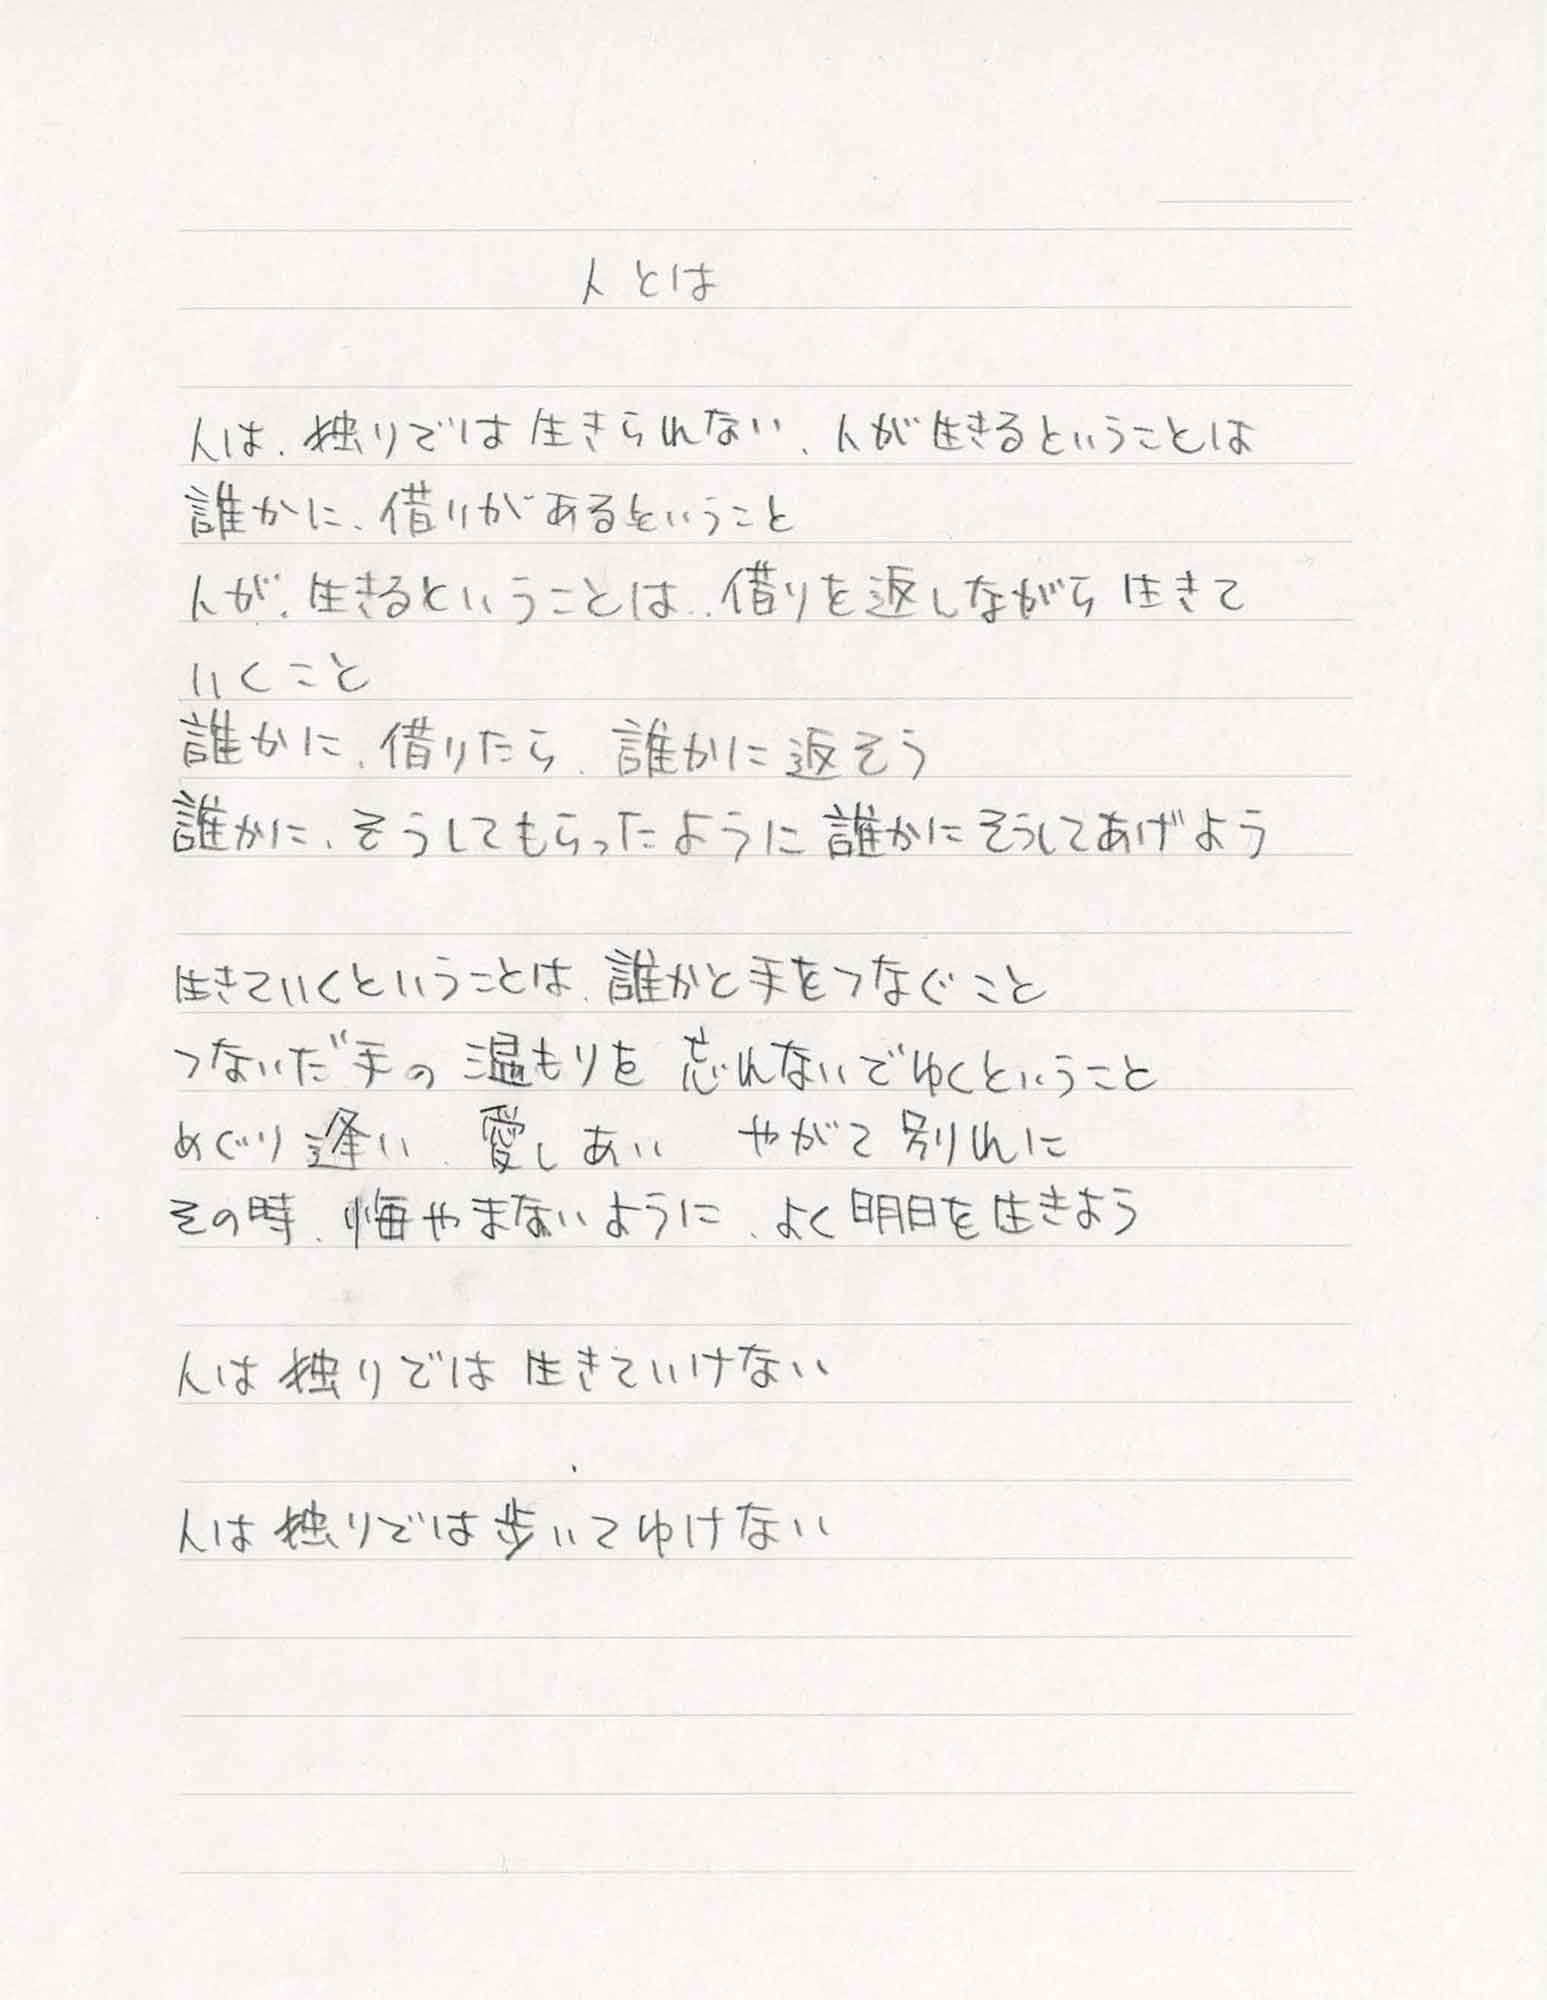 人とは
人は、独りでは生きられない、人が生きるということは
誰かに、借りがあるということ
人が、生きるということは、借りを返しながら生きて
いくこと
誰かに、借りたら、誰かに返そう
誰かに、そうしてもらったように誰かにそうしてあげよう
生きていくということは、誰かと手をつなぐこと
つないだ手の温もりを忘れないでゆくということ
めぐり逢い、愛しあい　やがて別れに
その時、悔やまないように、よく明日を生きよう
人は独りでは生きていけない
人は独りでは歩いてゆけない